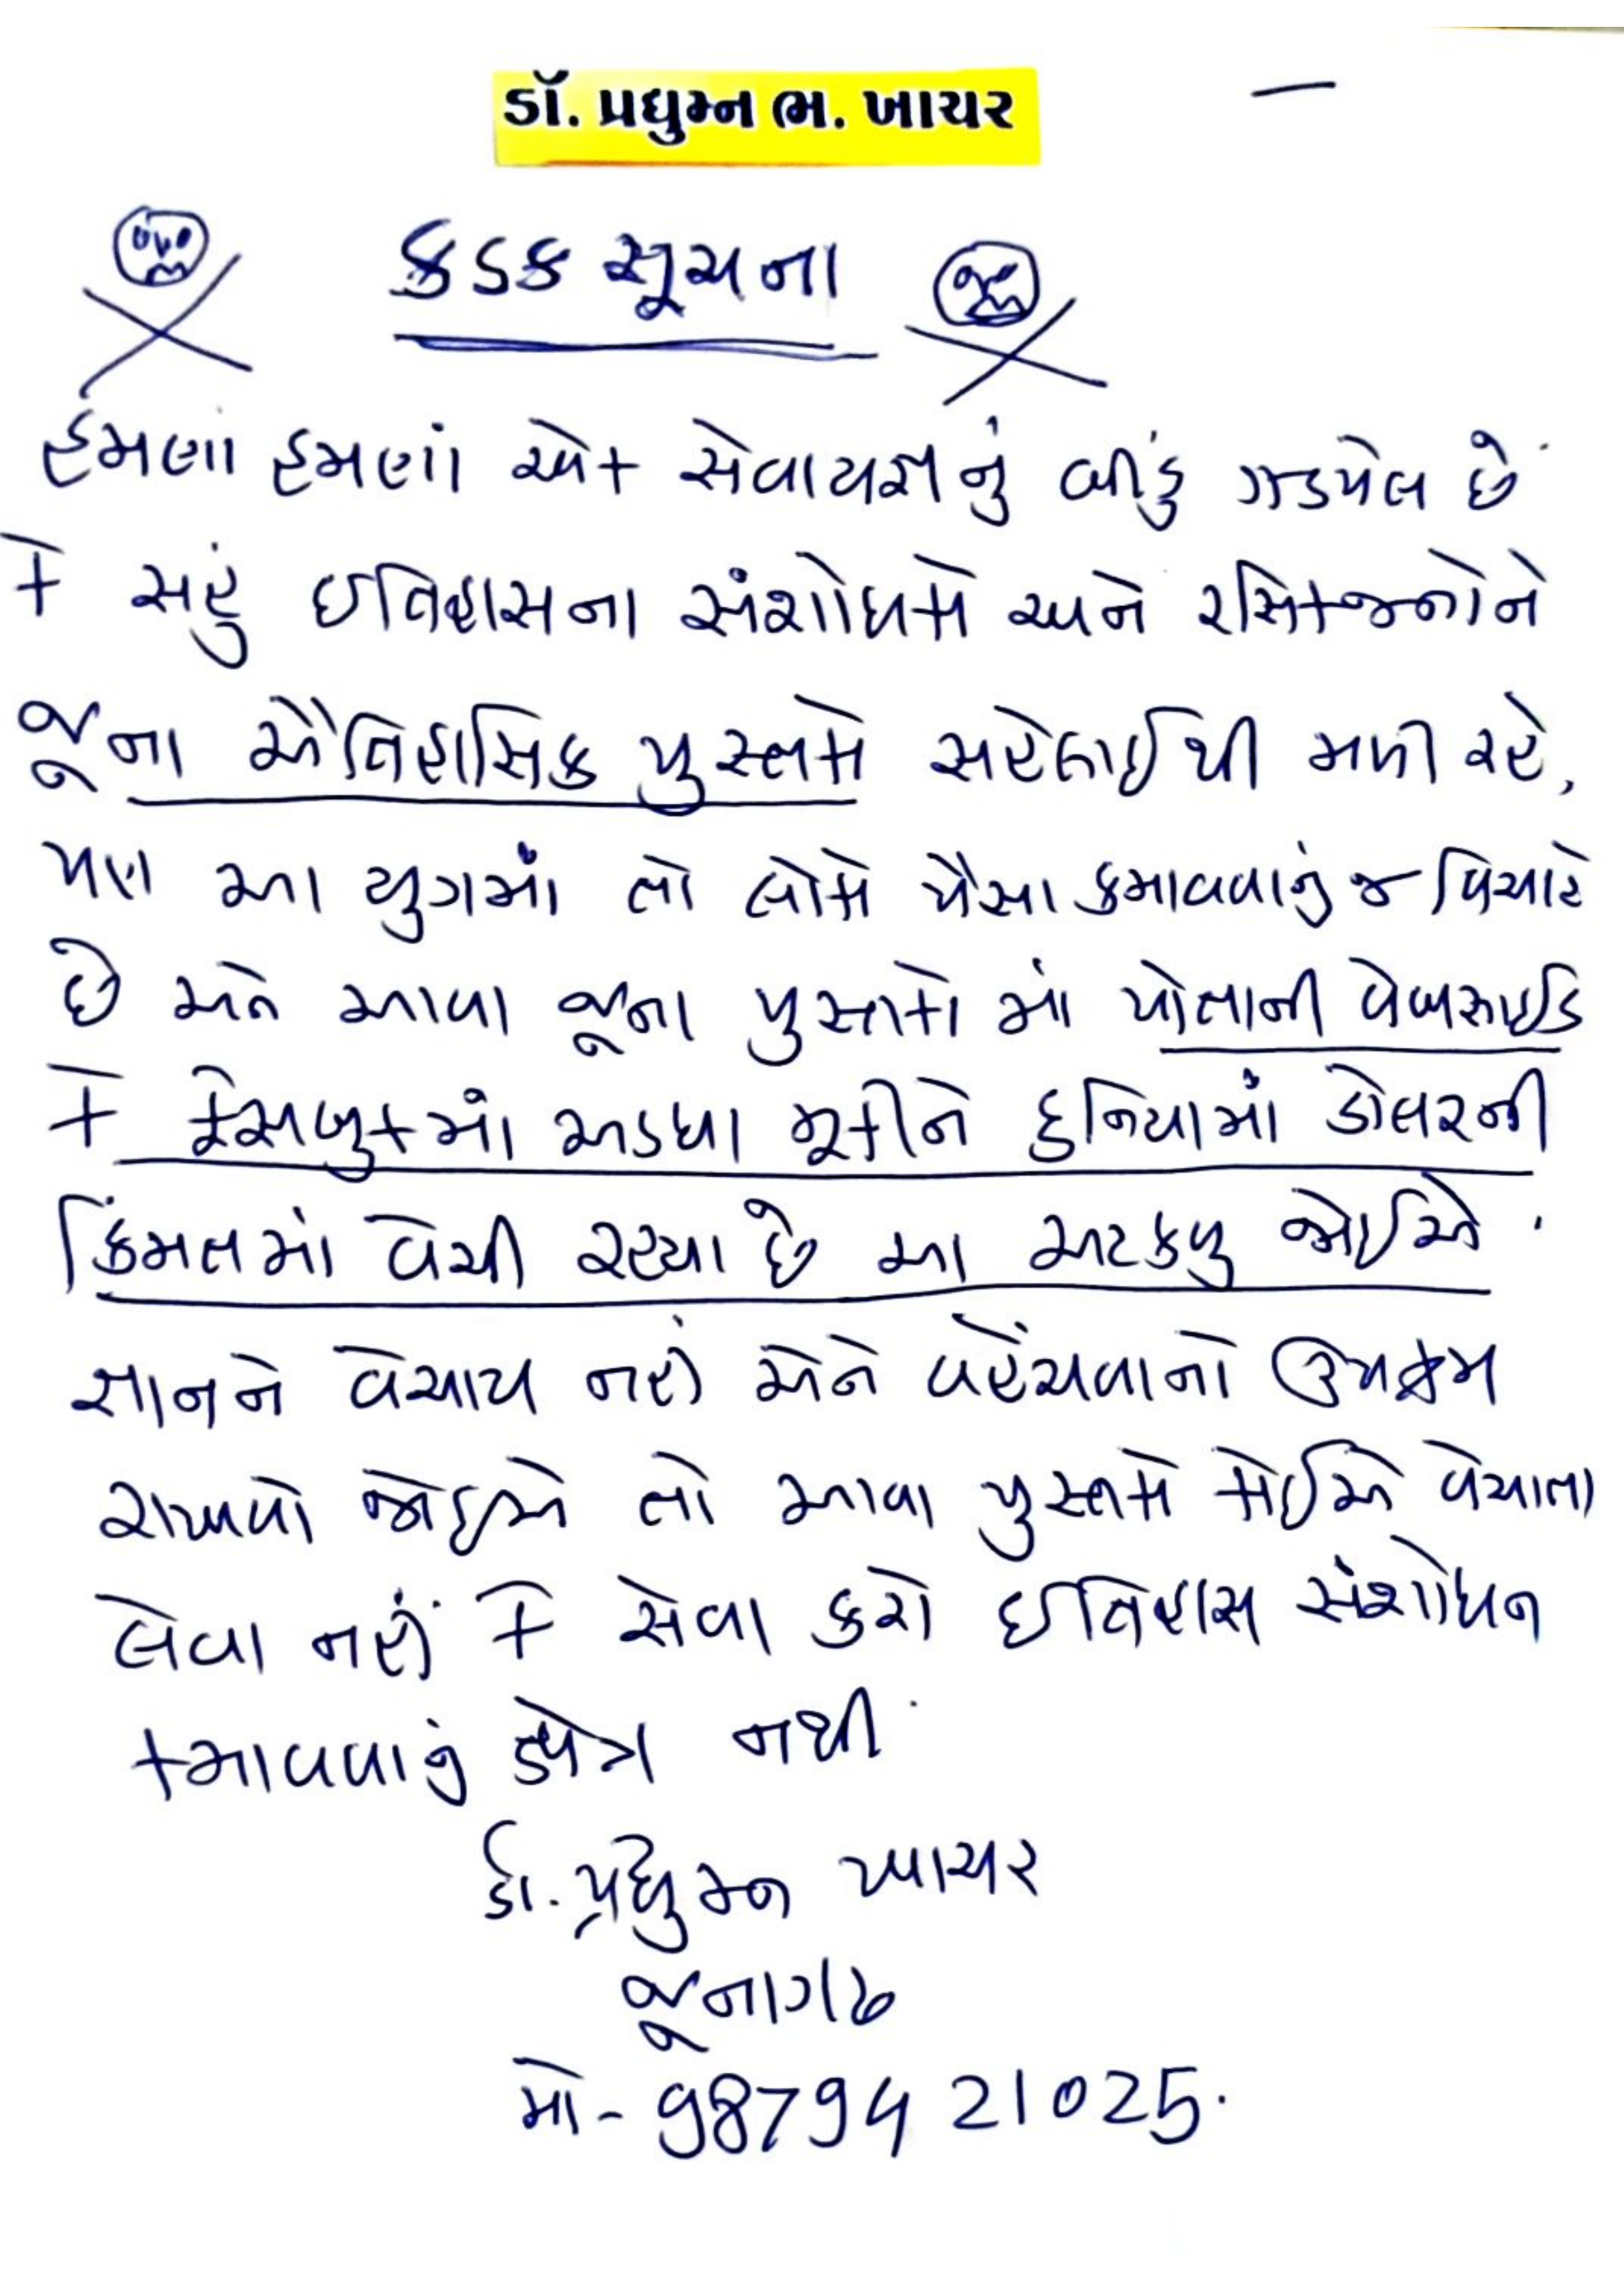 ડૉ. પ્રદ્યુમ્ન ભ. ખાચર
કડક સૂચના
હમણાં હમણાં એક સેવાયજ્ઞનું બીડું ઝડપેલ છે
કે સહું ઇતિહાસના સંશોધકો અને રસિકજનોને
જૂના ઐતિહાસિક પુસ્તકો સહેલાઈથી મળી રહે,
પણ આ યુગમાં તો લોકો પૈસા કમાવવાનું જ વિચારે
છે અને આવા જૂના પુસ્તકો માં પોતાની વેબસાઈડ
કે ફેસબુકમાં અડધા મૂકીને દુનિયામાં ડોલરની
કિંમતમાં વેચી રહ્યા છે આ અટકવુ જોઈએ.
જ્ઞાનને વેચાય નહીં એને વહેંચવાનો ઉપક્રમ
રાખવો જોઇએ તો આવા પુસ્તકો કોઈએ વેચાતા
લેવા નહીં કે સેવા કરો ઇતિહાસ સંશોધન
કમાવવાનું ક્ષેત્ર નથી.
ડૉ. પ્રદ્યુમ્ન ખાચર
જૂનાગઢ
મો - 98794 21025.